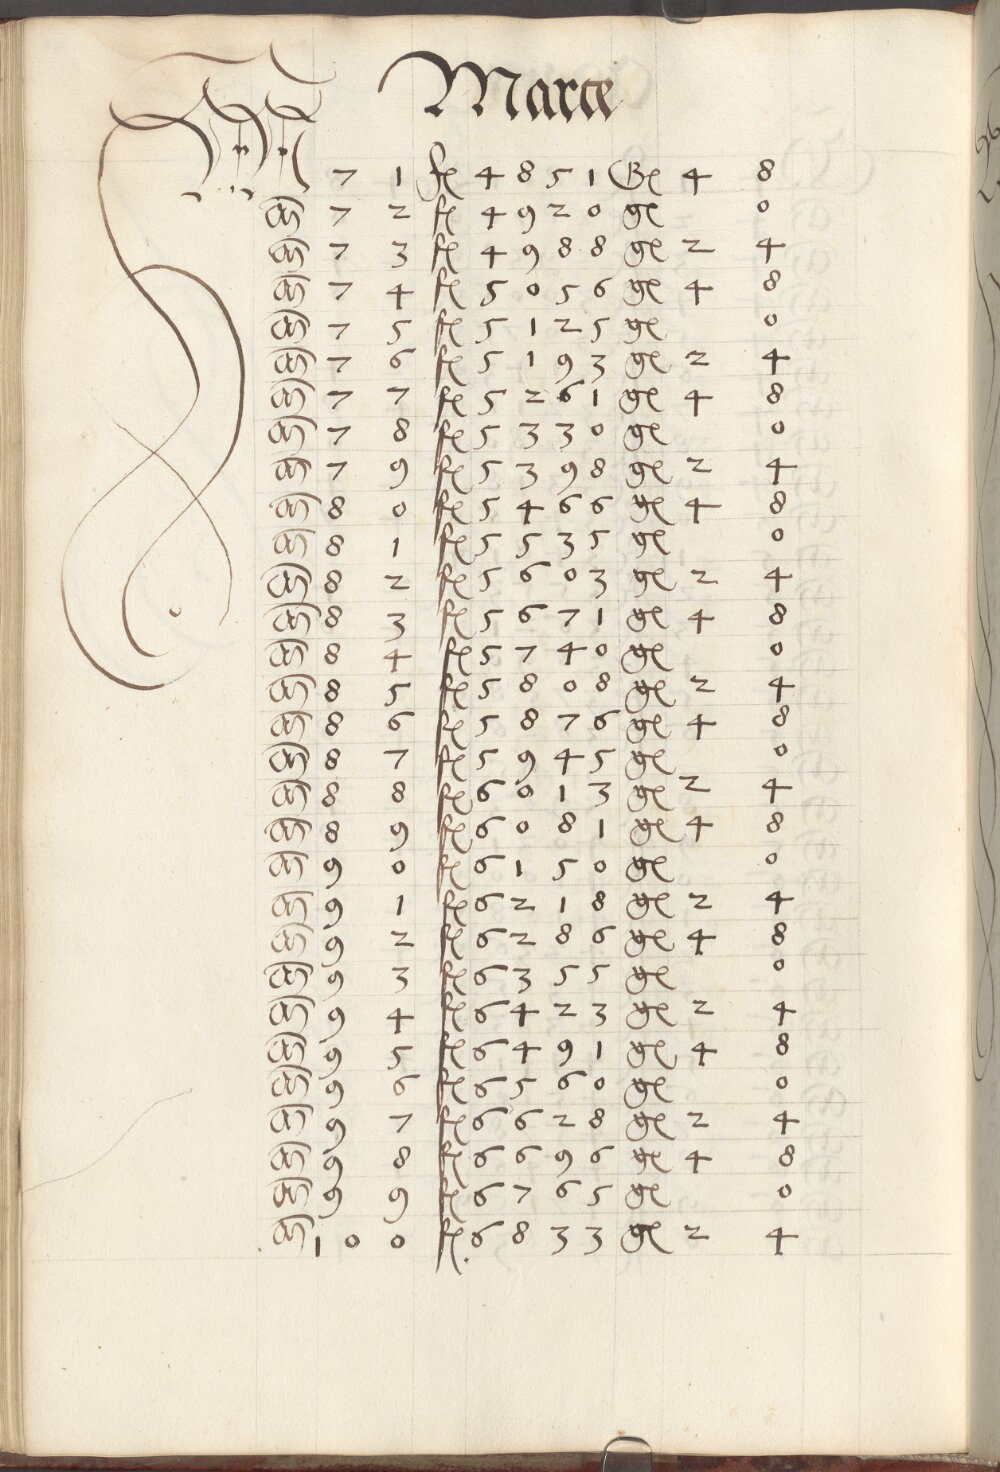 Marce
M 71 fl 4851 Gl 48
M 72 fl 4920 gl 0
M 73 fl 4988 gl 24
M 74 fl 5056 gl 48
M 75 fl 5125 gl 0
M 76 fl 5193 gl 24
M 77 fl 5261 gl 48
M 78 fl 5330 gl 0
M 79 fl 5398 gl 24
M 80 fl 5466 gl 48
M 81 fl 5535 gl 0
M 82 fl 5603 gl 24
M 83 fl 5671 gl 48
M 84 fl 5740 gl 0
M 85 fl 5808 gl 24
M 86 fl 5876 gl 48
M 87 fl 5945 gl 0
M 88 fl 6013 gl 24
M 89 fl 6081 gl 48
M 90 fl 6150 gl 0
M 91 fl 6218 gl 24
M 92 fl 6286 gl 48
M 93 fl 6355 gl 0
M 94 fl 6423 gl 24
M 95 fl 6491 gl 48
M 96 fl 6560 gl 0
M 97 fl 6628 gl 24
M 98 fl 6696 gl 48
M 99 fl 6765 gl 0
M 100 fl 6833 gl 24